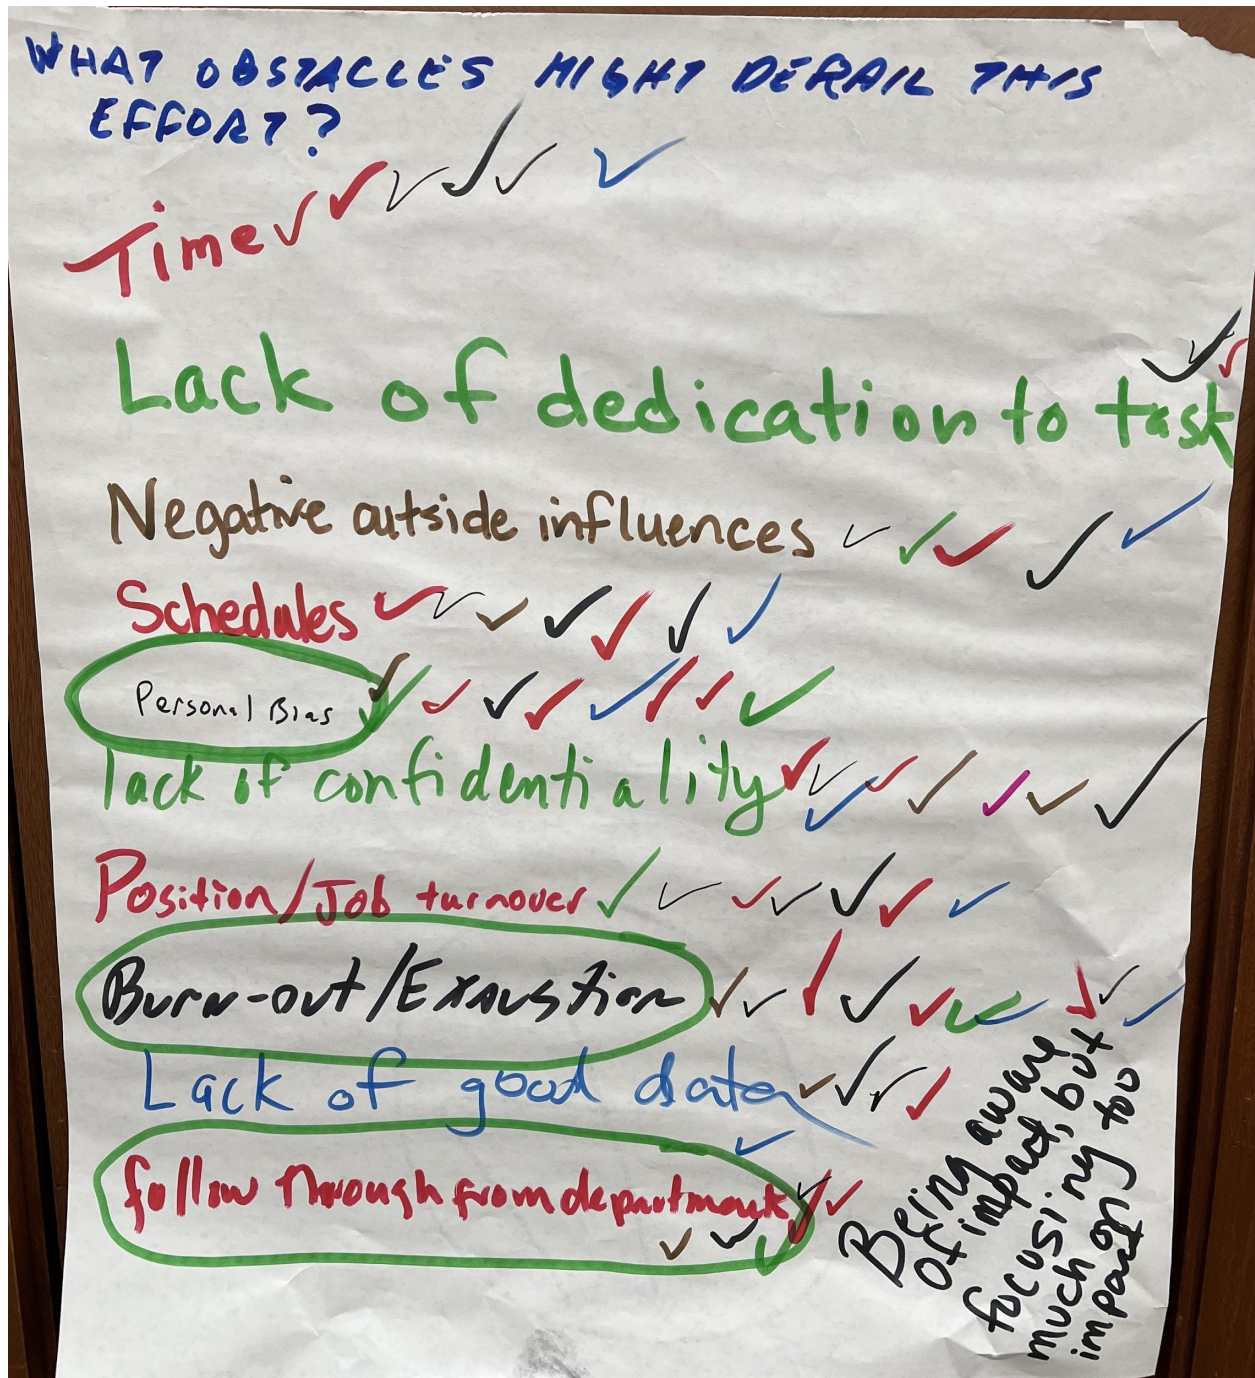 WHAT OBSTACLES MIGHT DERAIL THIS
EFFORT?
Time
Lack of dedication to task
Negative outside influences
Schedules
Personal Bias
lack of confidentiality
Position/Job turnover
Burn-out/Exaustion
Lack of good data
follow through from departments
Being aware
of impact, but
focusing too
much on
impact